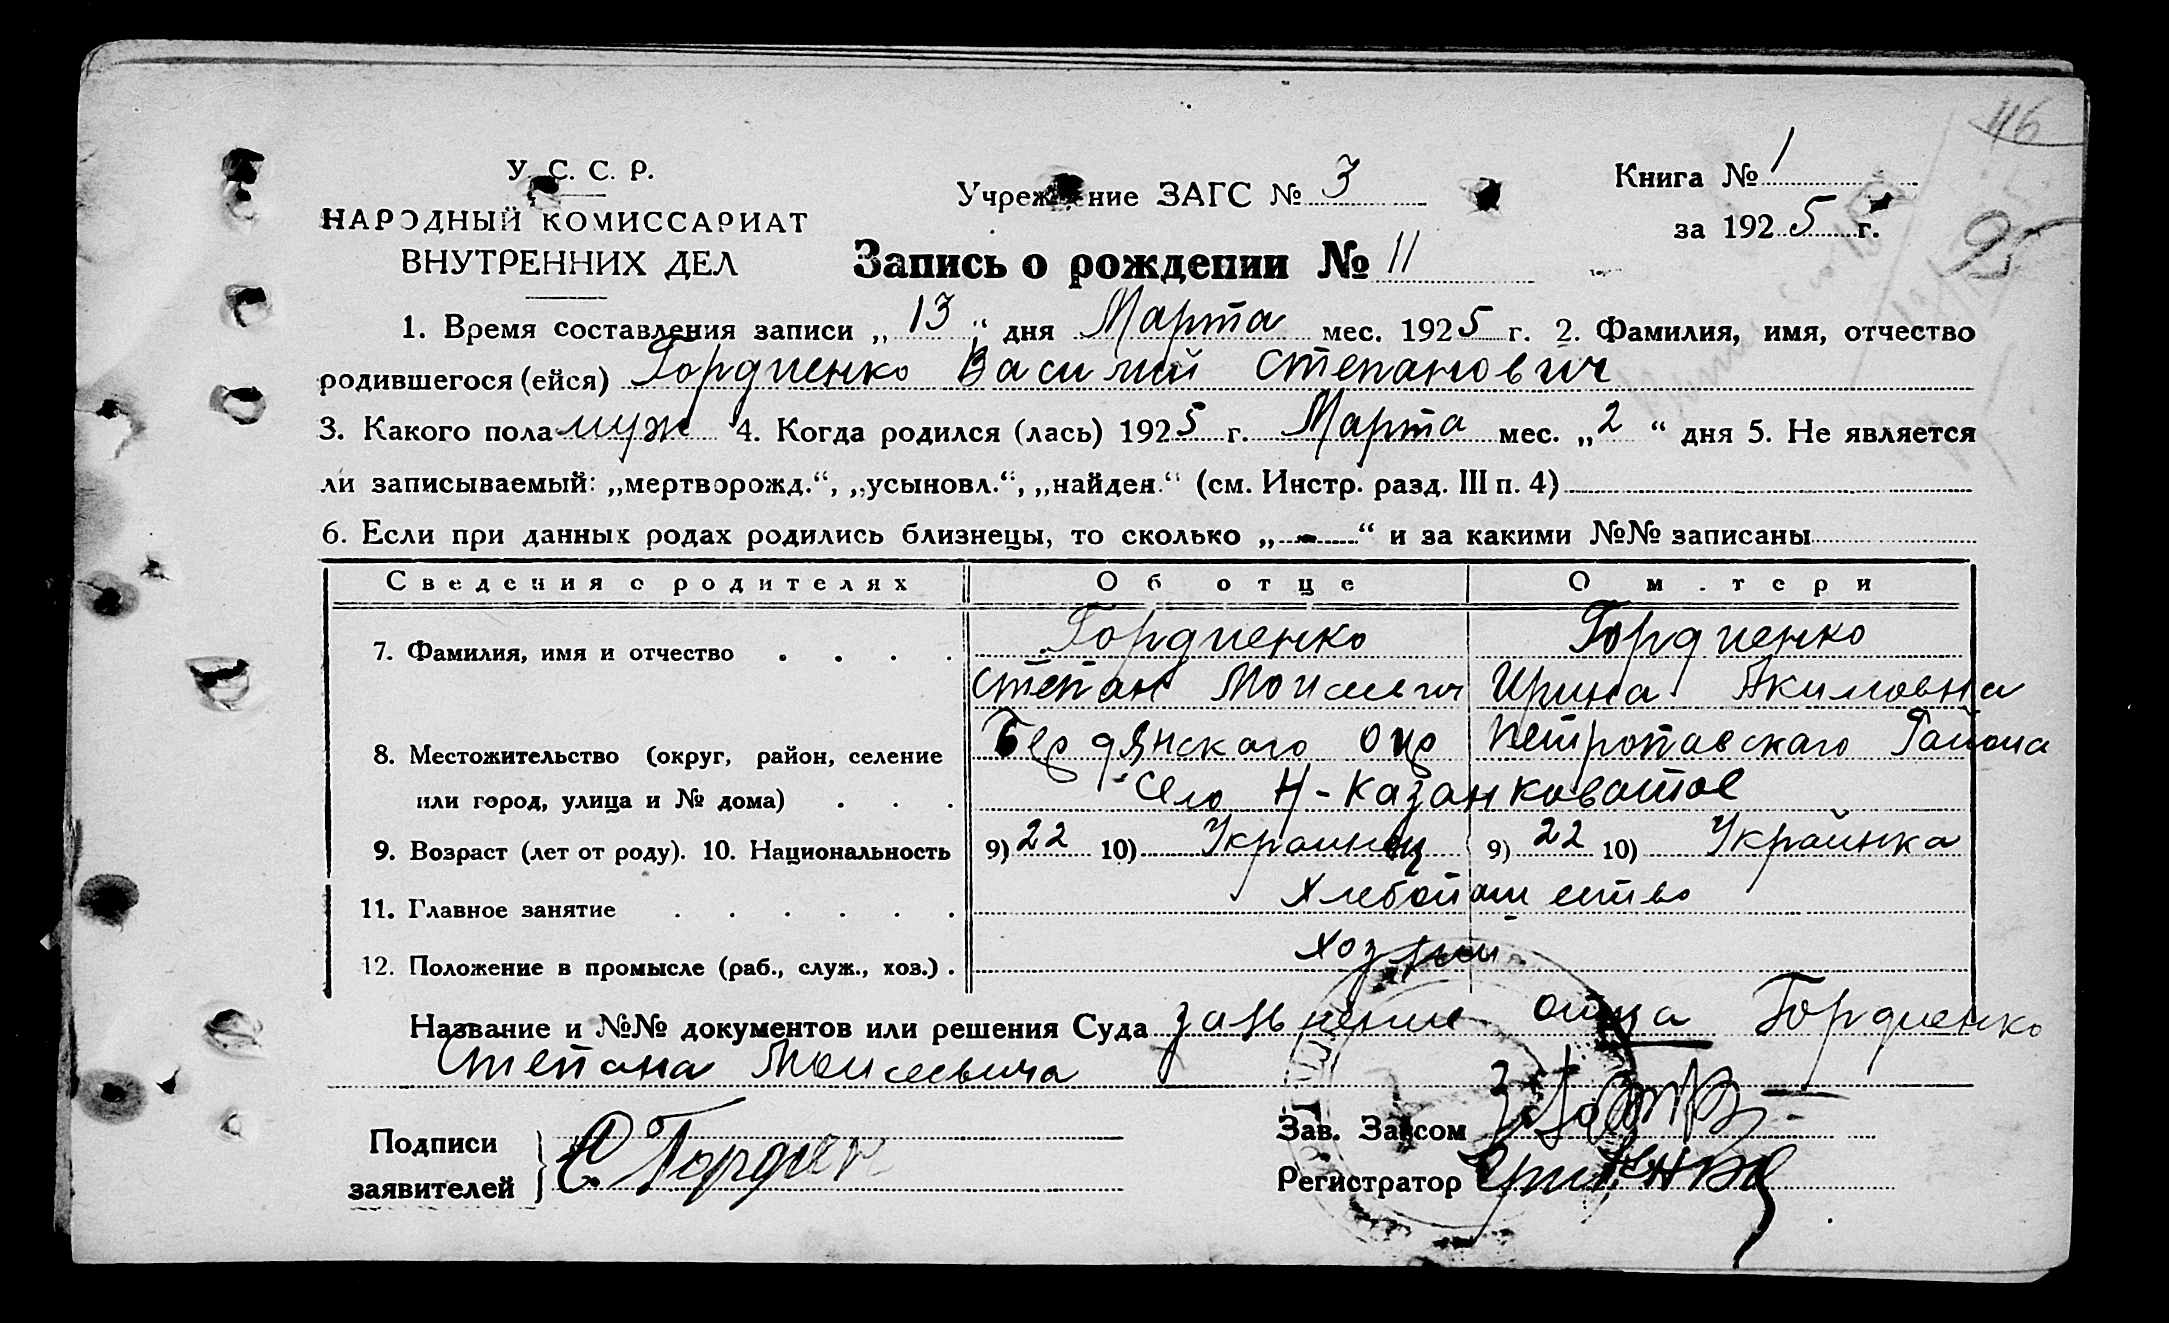 116
У. С. С. Р.
НАРОДНЫЙ КОМИССАРИАТ
ВНУТРЕННИХ ДЕЛ
Учреждение ЗАГС № 3
Книга № 1
за 1925 г.
95
Запись о рождении № 11
1. Время составления записи „13“ дня Марта мес. 1925 г. 2. Фамилия, имя, отчество
родившегося (ейся) Гордиенко Василий Степанович
3. Какого пола муж 4. Когда родился (лась) 1925 г. Марта мес. „2“ дня 5. Не является
ли записываемый: „мертворожд.“, „усыновл.“, „найден.“ (см. Инстр. разд. III п. 4)
6. Если при данных родах родились близнецы, то сколько „-“ и за какими №№ записаны
Сведения о родителях Об отце О м.тери
7. Фамилия, имя и отчество Гордиенко Гордиенко
Степан Моисеевич Ирина Акимовна
8. Местожительство (округ, район, селение Бердянского окр Петропавскаго Района
или город, улица и № дома) Село Н-Казанковатое
9. Возраст (лет от роду). 10. Национальность 9) 22 10) Украинец 9) 22 10) Украинка
11. Главное занятие Хлебопашество
12. Положение в промысле (раб., служ., хоз.) Хозяин
Название и №№ документов или решения Суда заявление отца Гордиенко
Степана Моисеевича
Подписи
заявителей С. Гордиен
Зав. Загсом
Регистратор